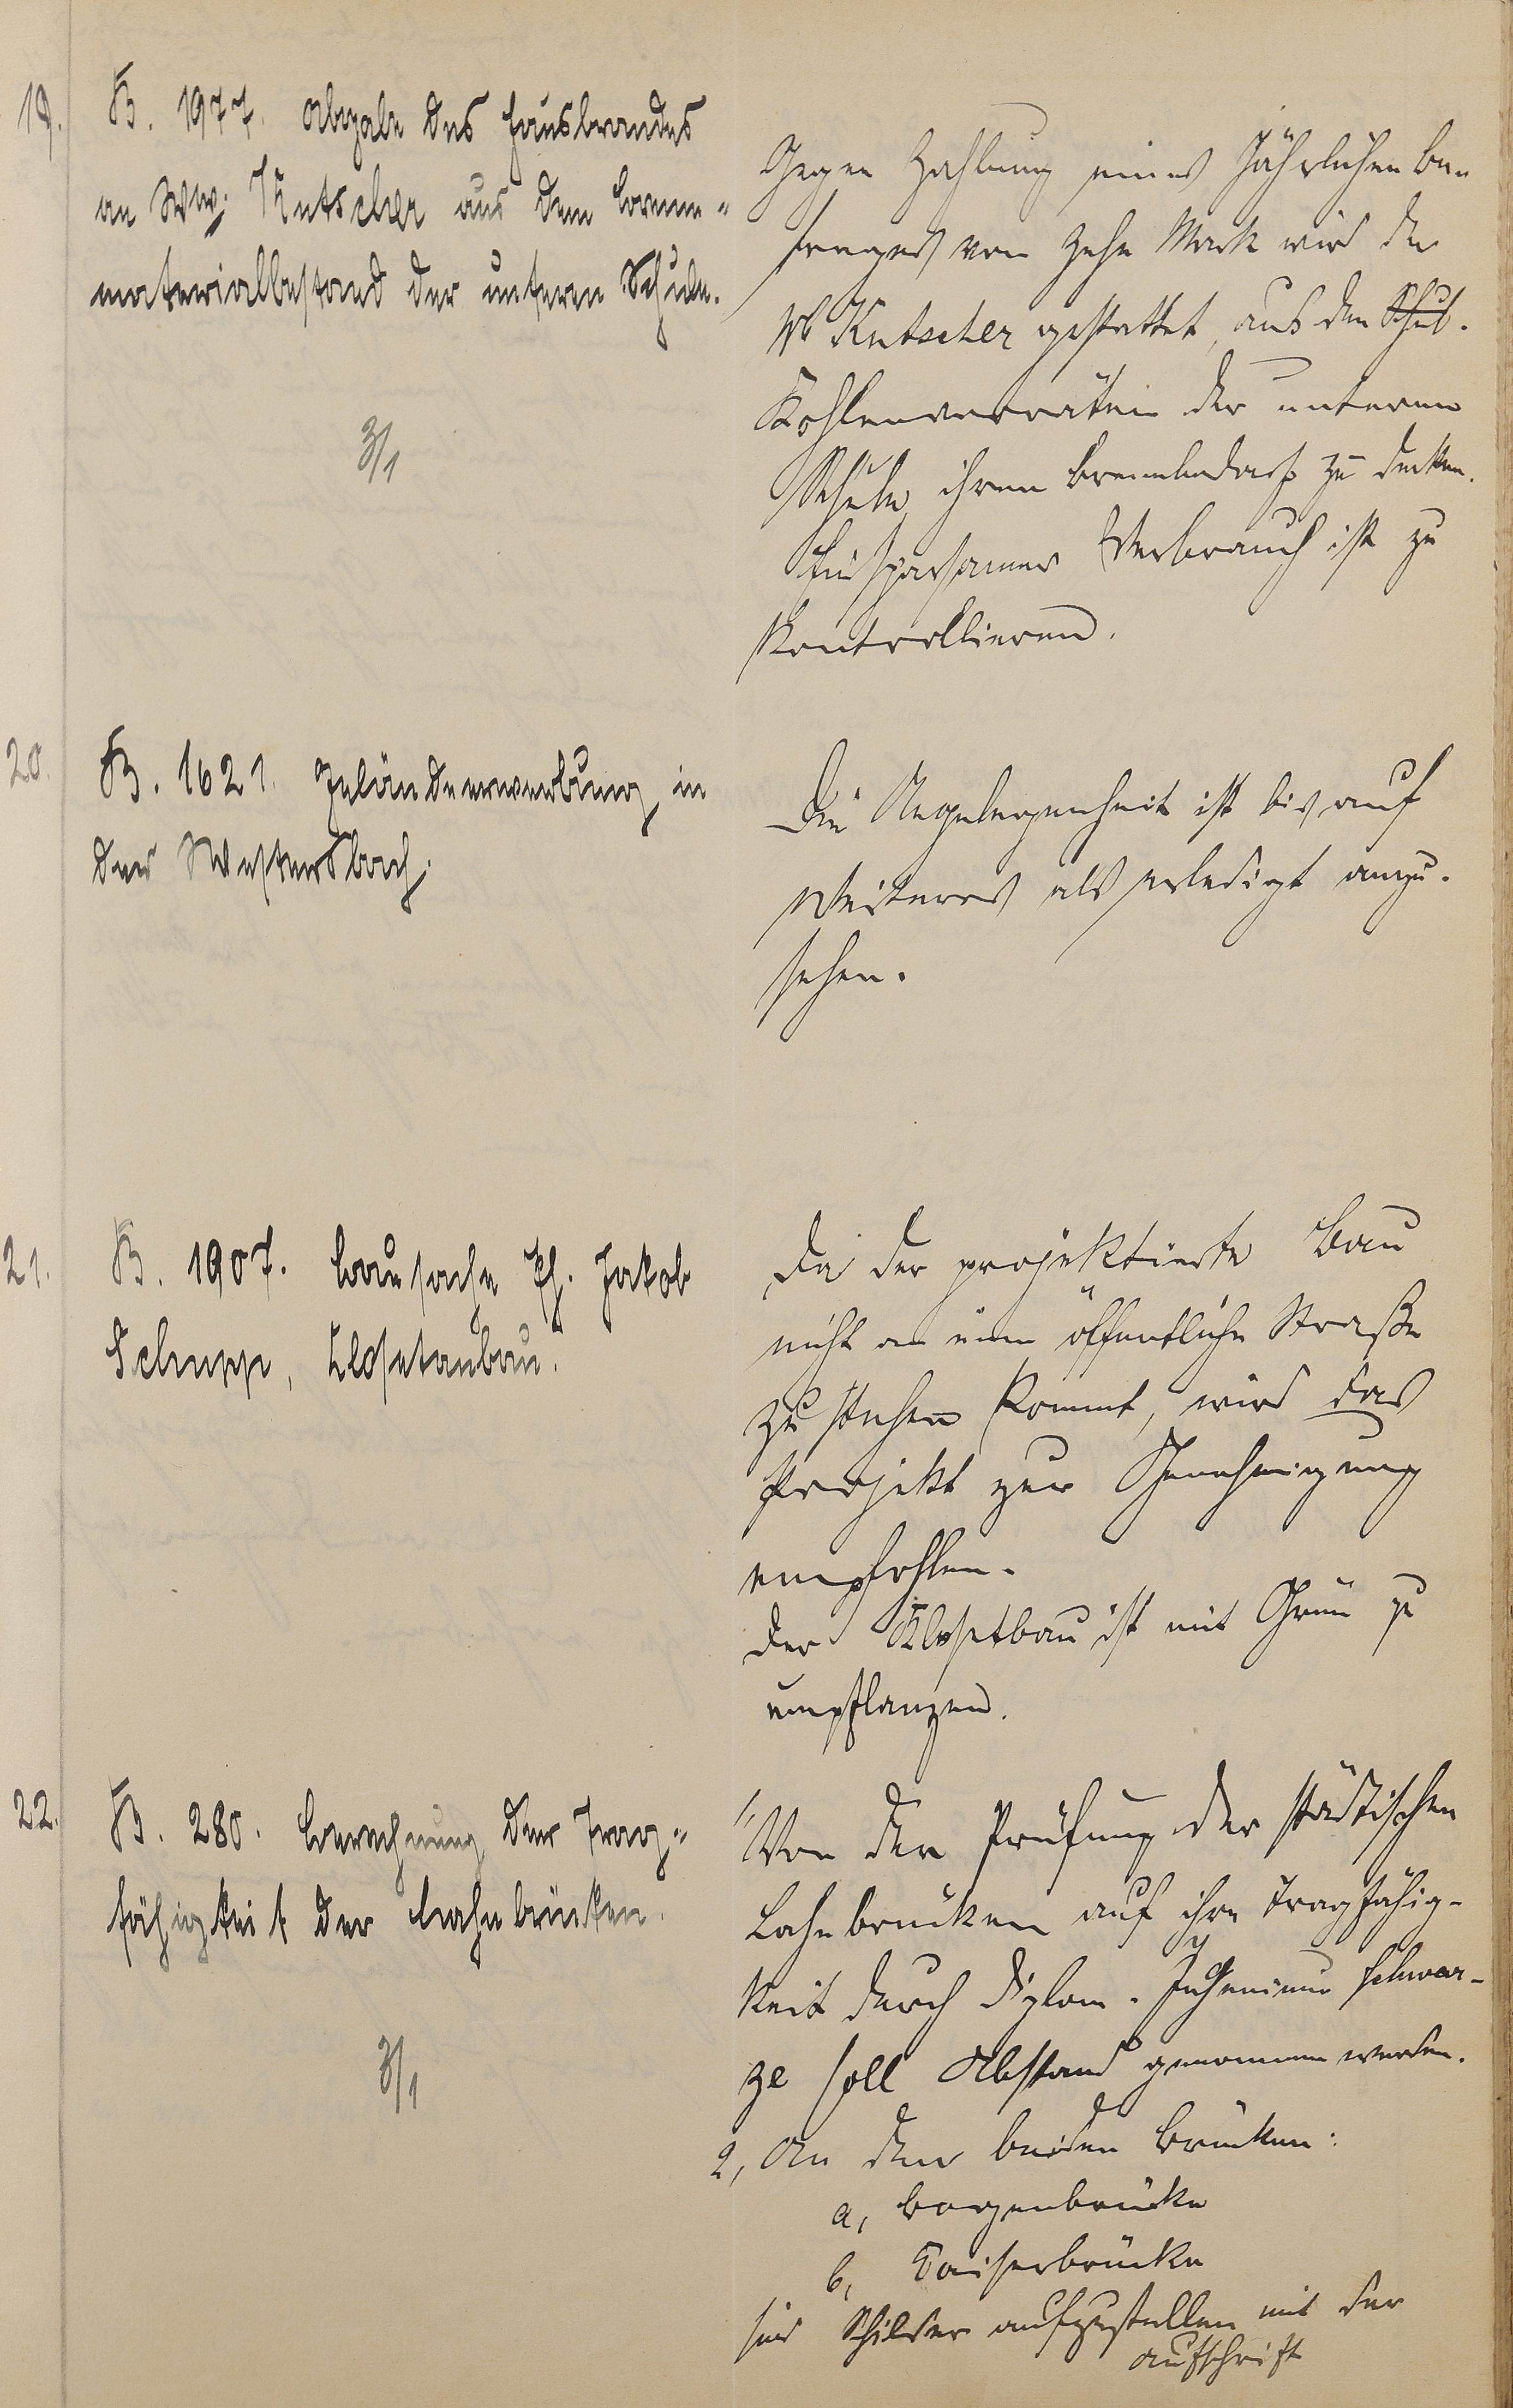 19.
B. 1977. Abgabe des Hausbrandes
an Ww: Kutscher aus dem Brenn-
materialbestand der unteren Schule.
3/1
Gegen Zahlung eines jährlichen Be-
trages von zehn Mark wird der
W Kutscher gestattet, aus den Schul-
Kohlenvorräten der unteren
Schule, ihren Brennbedarf zu decken.
Ein sparsamer Verbrauch ist zu
kontrollieren.
20.
B. 1621. Geländeerwerbung in
der Westersbach.
Die Angelegenheit ist bis auf
Weiteres als erledigt anzu-
sehen.
21.
B. 1907. Bausache Ph. Jakob
Schupp, Closetanbau.
Da der projektierte Bau
nicht an einer öffentliche Straße
zu stehen kommt, wird das
Projekt zur Genehmigung
empfohlen.
Der Klosetbau ist mit Grün zu
umpflanzen.
22.
B. 280. Berechnung der Trag-
fähigkeit der Lahnbrücken.
3/1
1, Von der Prüfung der städtischen
Lahnbrücken auf ihre Tragfähig-
keit durch Diplom. Ingenieur Schwar-
ze soll Abstand genommen werden.
2, An den beiden Brücken:
a, Bogenbrücke
b, Kaiserbrücke
sind Schilder aufzustellen mit der
Aufschrift